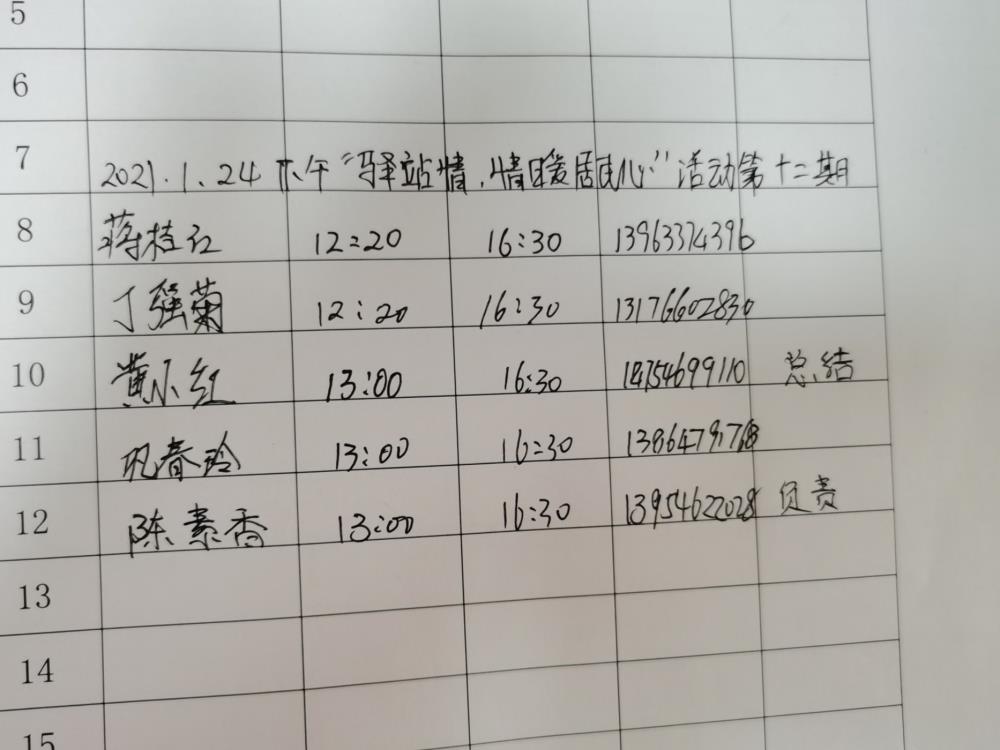 5
6
7 2021.1.24 下午“驿站情,情暖居民心”活动第十二期
8 蒋桂红 12:20 16:30 13963374396
9 丁强菊 12:20 16:30 13176602830
10 黄小红 13:00 16:30 14754699110 总结
11 巩春玲 13:00 16:30
12 陈素香 13:00 16:30 13954622028 负责
13
14
15